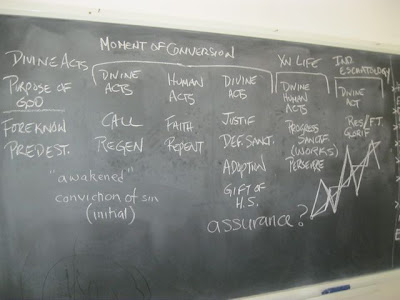 MOMENT OF CONVERSION
XN LIFE
IND.
ESCHATOLOGY
DIVINE ACTS
PURPOSE OF
GOD
FOREKNOW
PREDEST.
DIVINE
ACTS
CALL
REGEN
HUMAN
ACTS
FAITH
REPENT
DIVINE
ACTS
JUSTIF
DEF. SANCT.
ADOPTION
GIFT OF
H.S.
DIVINE
HUMAN
ACTS
PROGRESS
SANCTIF
(WORKS)
PERSEVERE
DIVINE
ACT
RES/FT.
GLORIF
"awakened"
conviction of sin
(initial)
assurance?